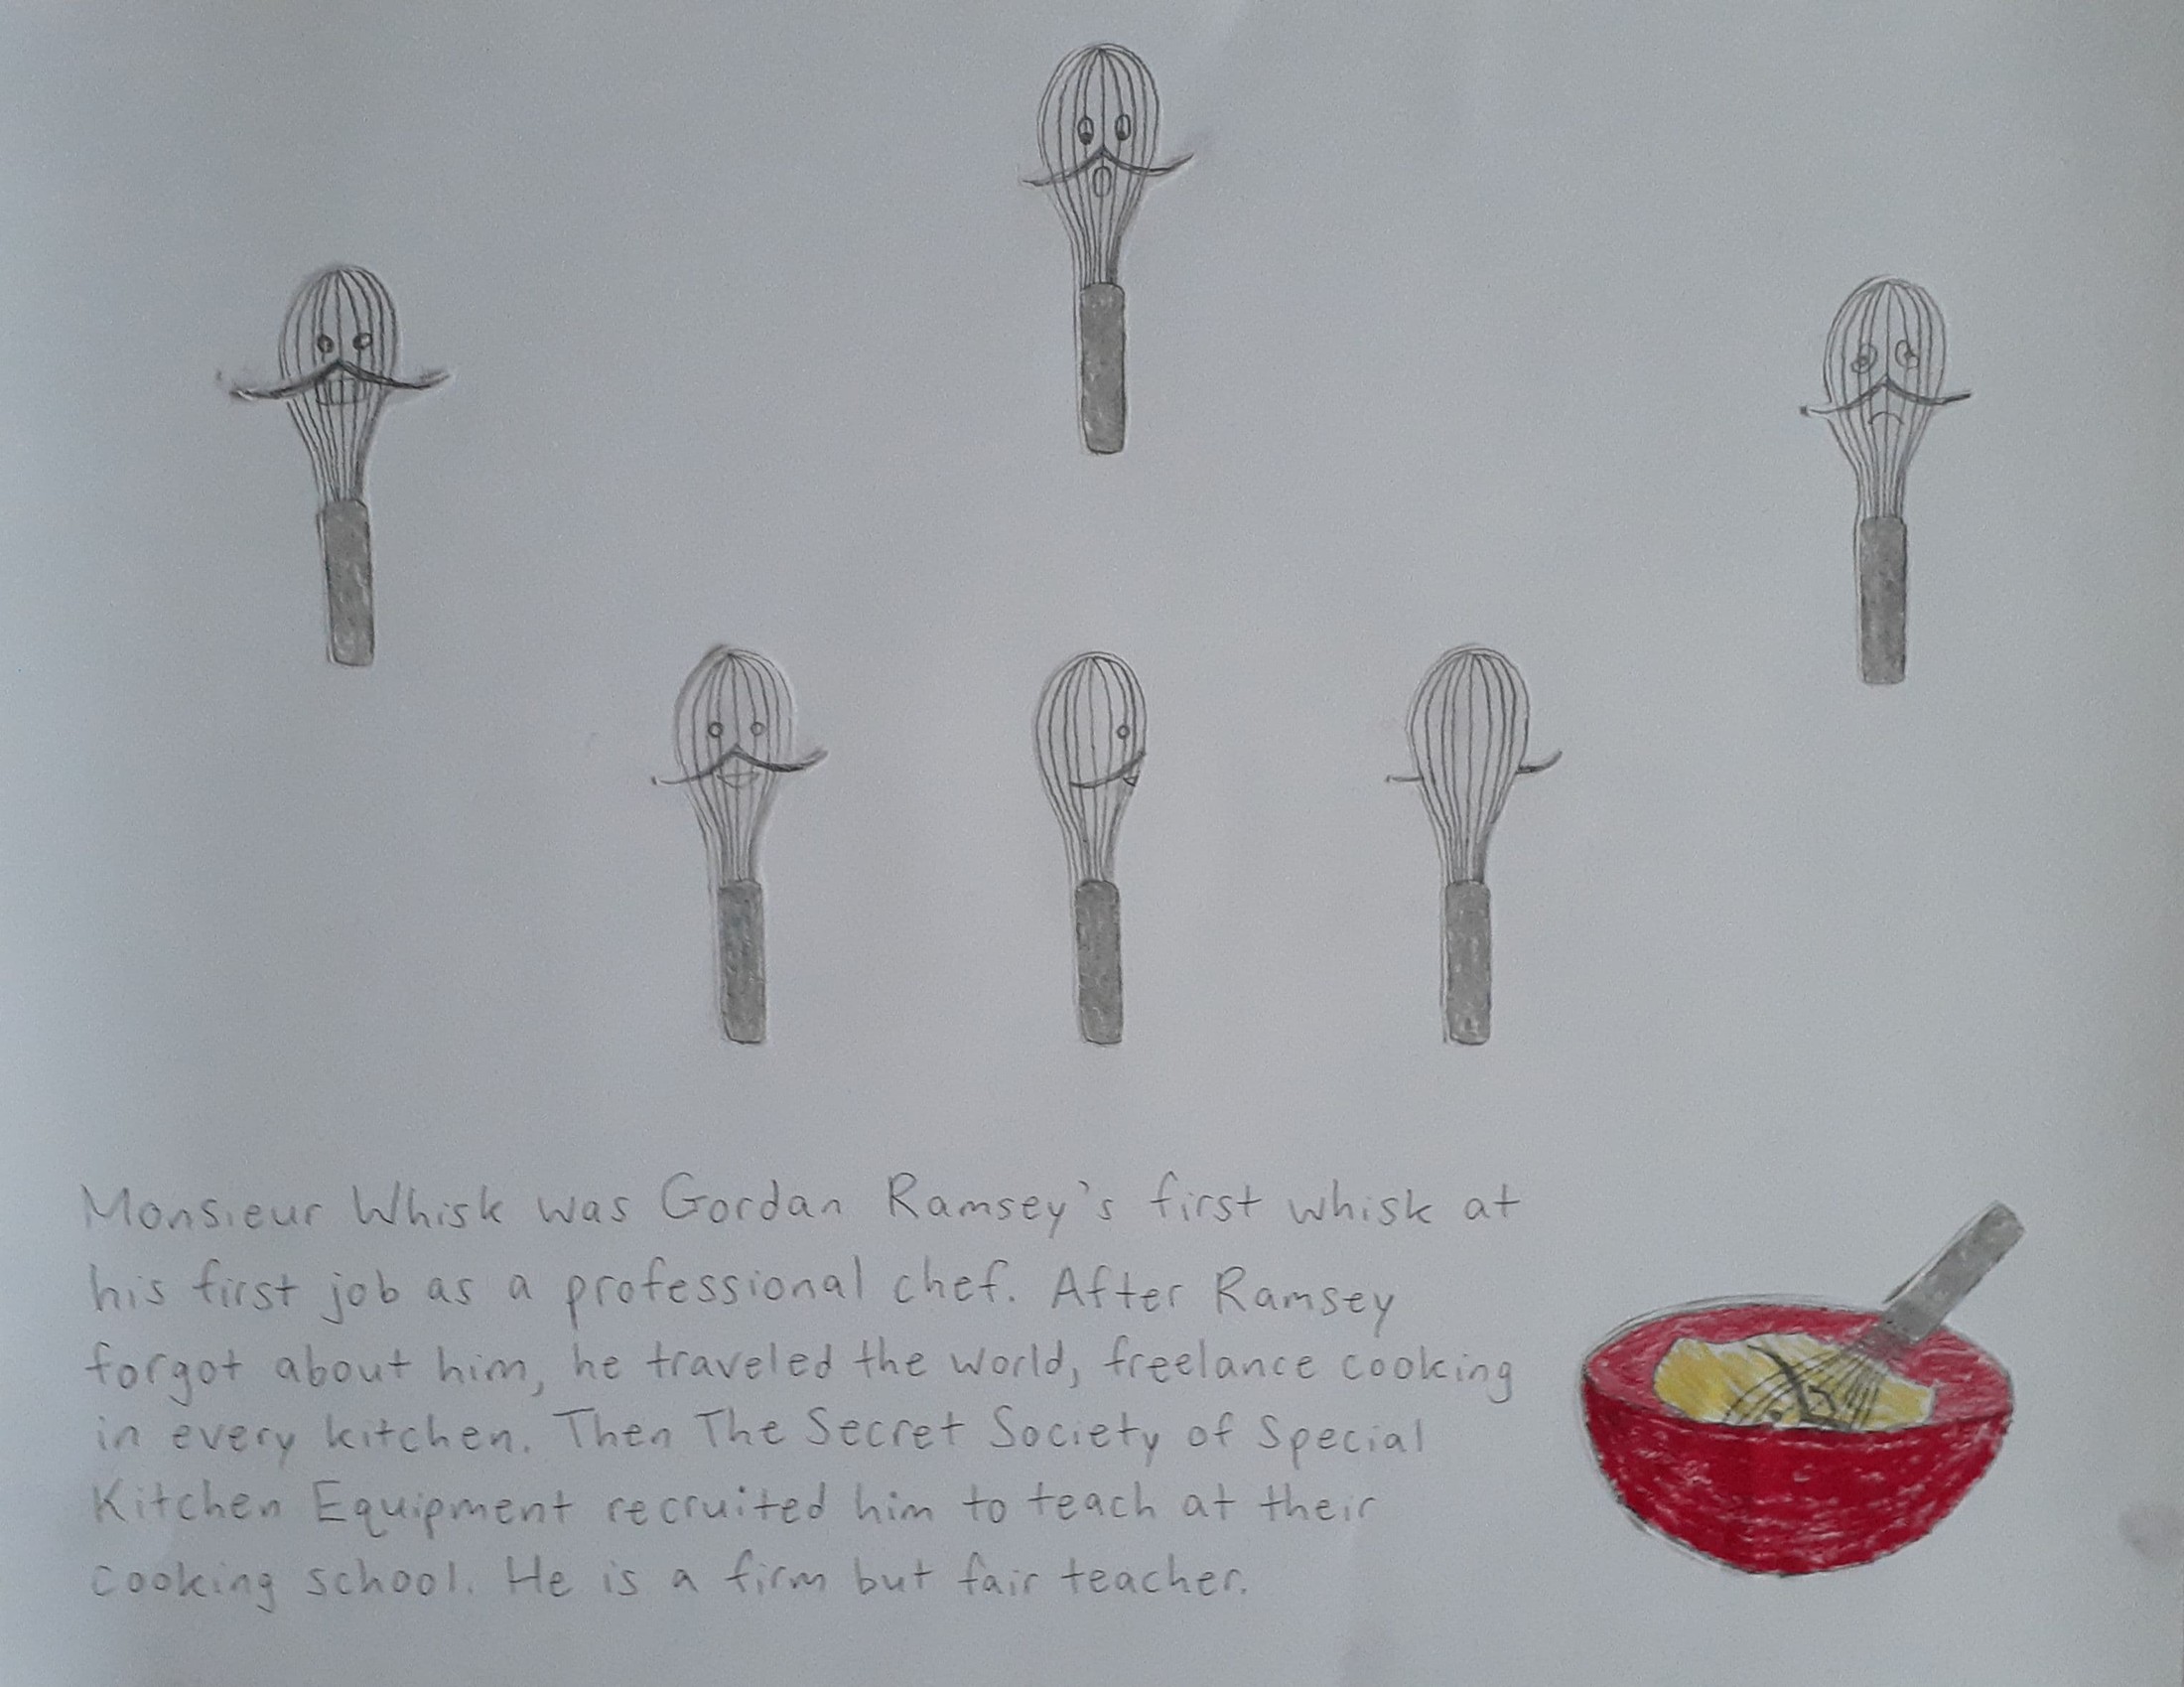 Monsieur Whisk was Gordan Ramsey's first whisk at
his first job as a professional chef. After Ramsey
forgot about him, he traveled the world, freelance cooking
in every kitchen. Then The Secret Society of Special
Kitchen Equipment recruited him to teach at their
cooking school. He is a firm but fair teacher.